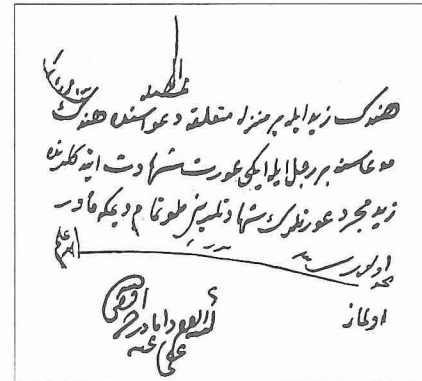 هندك زيد ايله بر منزله متعلقه دعواسنده هندك
مدعاسنه بر رجل ايله ايكى عورت شهادت ايتدكلرنده
زيد مجرد عورتلرك شهادتلرين طوتمام ديمكه قادر
اولورمى
الله اعلم
اولماز
كتبه الفقير داماد زاده
عفى عنه